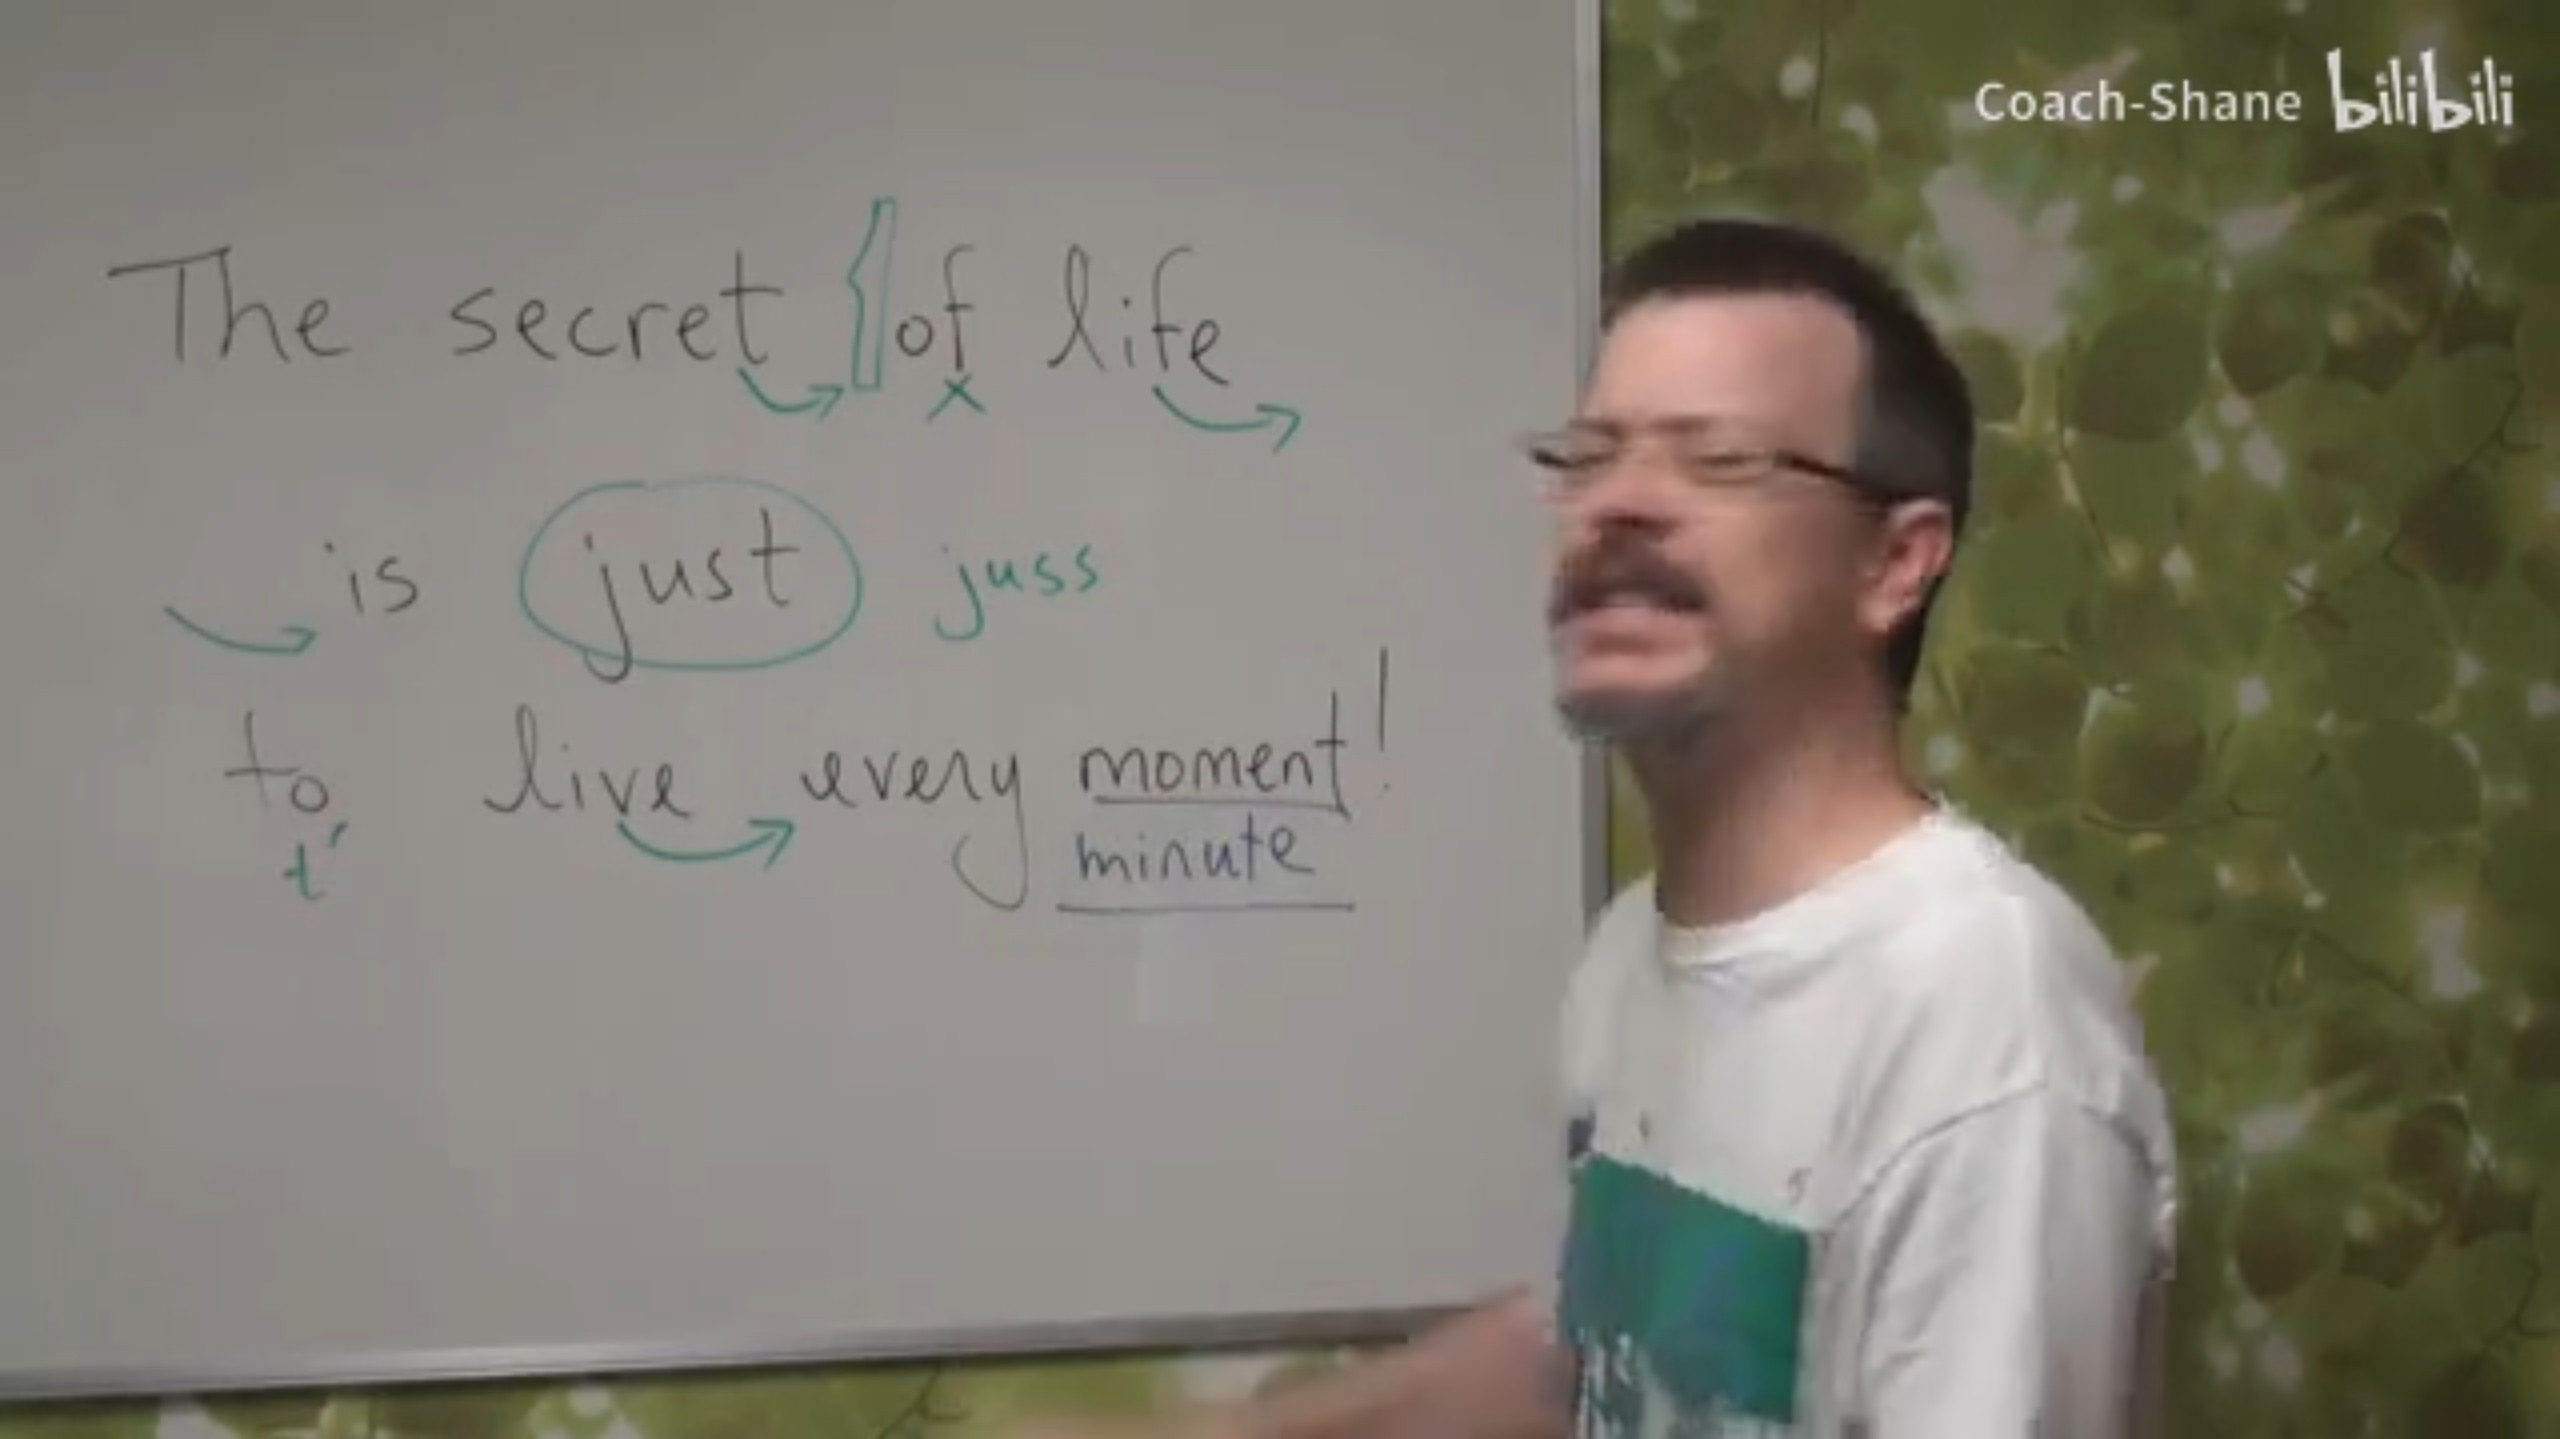 Coach-Shane bilibili
The secret of life
x
is just juss
to live every moment!
t' minute